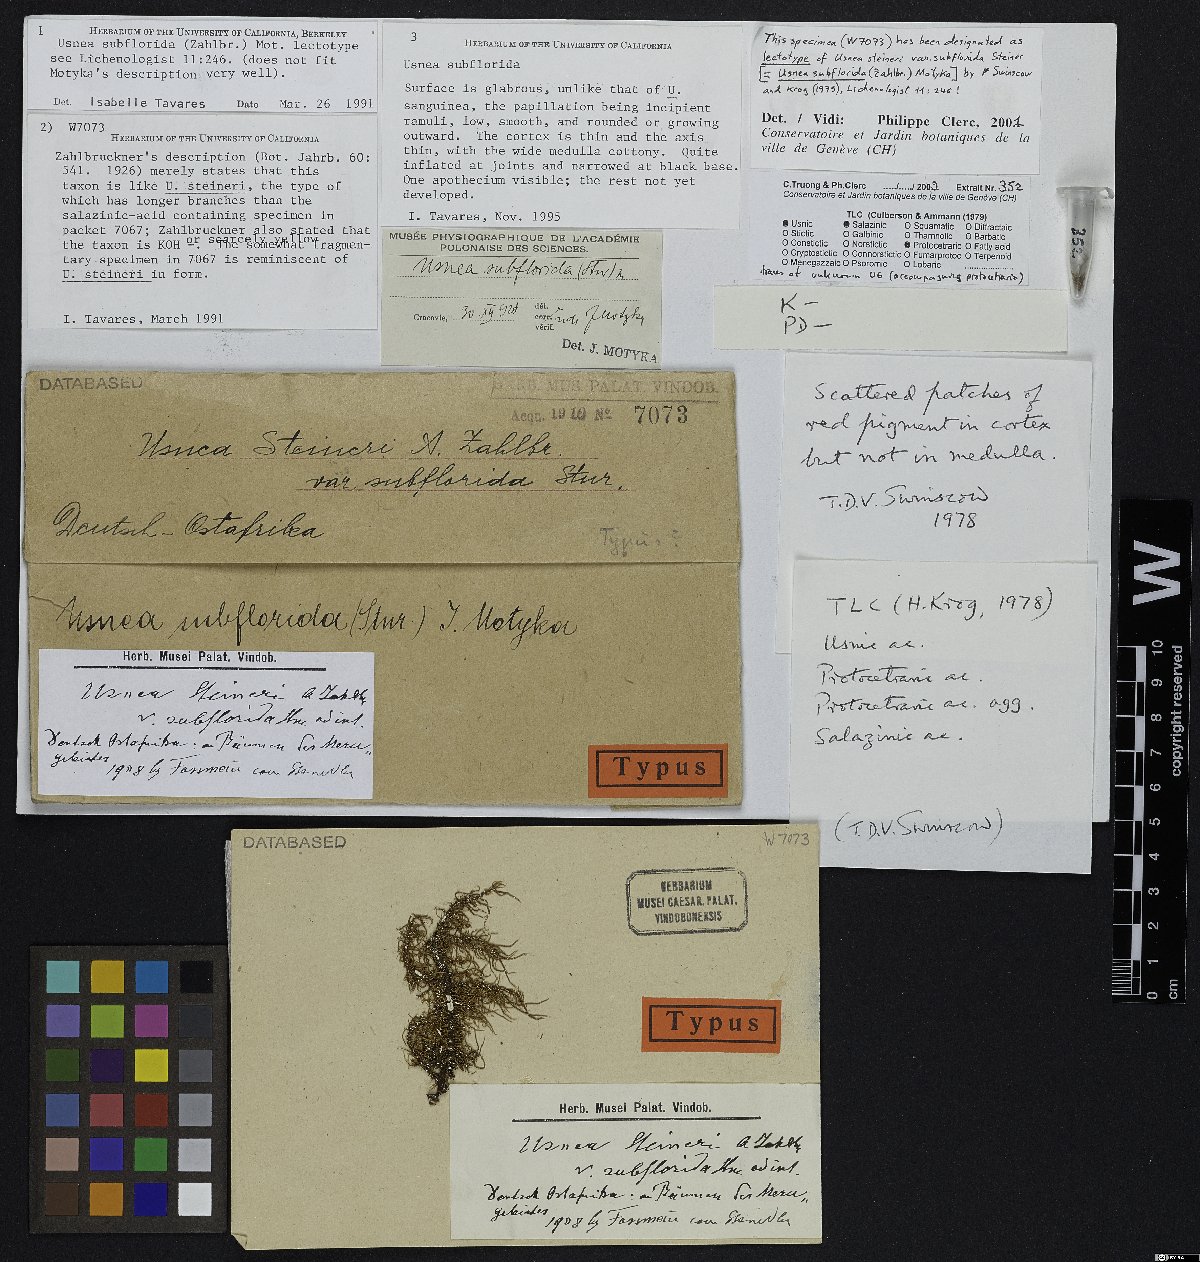 1 HERBARIUM OF THE UNIVERSITY OF CALIFORNIA, BERKELEY
Usnea subflorida (Zahlbr.) Mot. lectotype
see Lichenologist 11:246. (does not fit
Motyka's description very well).
Det. Isabelle Tavares Date Mar. 26 1991
2) W7073
HERBARIUM OF THE UNIVERSITY OF CALIFORNIA
Zahlbruckner's description (Bot. Jahrb. 60:
541. 1926) merely states that this
taxon is like U. steineri, the type of
which has longer branches than the
salazinic-acid containing specimen in
packet 7067; Zahlbruckner also stated that
or scarcely yellow
the taxon is KOH - . The somewhat fragmen-
tary specimen in 7067 is reminiscent of
U. steineri in form.
I. Tavares, March 1991
3
HERBARIUM OF THE UNIVERSITY OF CALIFORNIA
Usnea subflorida
Surface is glabrous, unlike that of U.
sanguinea, the papillation being incipient
ramuli, low, smooth, and rounded or growing
outward. The cortex is thin and the axis
thin, with the wide medulla cottony. Quite
inflated at joints and narrowed at black base.
One apothecium visible; the rest not yet
developed.
I. Tavares, Nov. 1995
MUSÉE PHYSIOGRAPHIQUE DE L'ACADÉMIE
POLONAISE DES SCIENCES.
Usnea subflorida (Stur)
Cracovie,
dét.
corr.
vérif. J Motyka
Det. J. MOTYKA
This specimen (W7073) has been designated as
lectotype of Usnea steineri var. subflorida Steiner
[= Usnea subflorida (Zahlbr.) Motyka] by Swinscow
and Krog (1979), Lichenologist 11: 246!
Det. / Vidi: Philippe Clerc, 2001
Conservatoire et Jardin botaniques de la
ville de Genève (CH)
C.Truong & Ph.Clerc ....../....../ 2002 Extrait Nr. 352
Conservatoire et Jardin botaniques de la ville de Genève (CH)
TLC (Culberson & Ammann (1979)
Usnic Salazinic Squamatic Diffractaic
Stictic Galbinic Thamnolic Barbatic
Constictic Norstictic Protocetraric Fatty acid
Cryptostictic Connorstictic Fumarprotoc Terpenoid
Menegazzaic Psoromic Lobaric
traces of unknown U6 (accompagning protocetraric)
352
K -
PD -
Scattered patches of
red pigment in cortex
but not in medulla.
T.D.V. Swinscow
1978
TLC (H. Krog, 1978)
Usnic ac.
Protocetraric ac.
Protocetraric ac. agg.
Salazinic ac.
(T.D.V. Swinscow)
DATABASED
HERB. MUS. PALAT. VINDOB.
Acqu. 1910 No. 7073
Usnea Steineri A. Zahlbr.
var subflorida Stur.
Deutsch-Ostafrika
Typus?
Usnea subflorida (Stur.) J. Motyka
Herb. Musei Palat. Vindob.
Usnea Steineri A Zahlbr
v. subflorida
Deutsch Ostafrika: a Bäumen des Meru-
gebietes
1908
Typus
DATABASED
W 7073
HERBARIUM
MUSEI CAESAR. PALAT.
VINDOBONENSIS
Typus
Herb. Musei Palat. Vindob.
Usnea Steineri A Zahlbr
v. subflorida
Deutsch Ostafrika: a Bäumen des Meru-
gebietes
1908
W
0 1 2 3 4 5 6 7 8 9 10
cm
copyright reserved